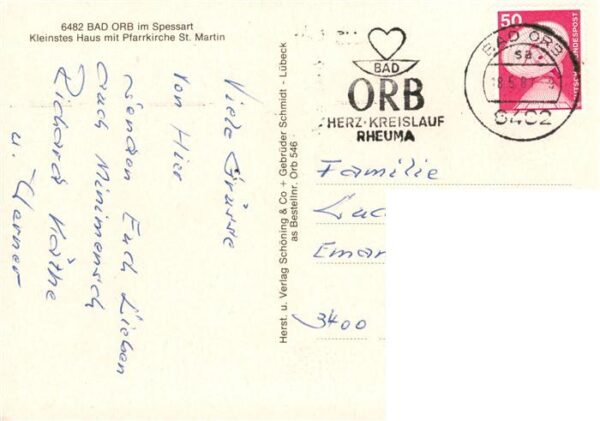 6482 BAD ORB im Spessart
Kleinstes Haus mit Pfarrkirche St. Martin
Viele Grüsse
von Hier
senden Euch Lieben
auch Minimensch
Richard Käthe
u. Werner
Herst. u. Verlag Schöning & Co + Gebrüder Schmidt - Lübeck
as Bestellnr. Orb 546
BAD
ORB
HERZ·KREISLAUF
RHEUMA
50
DEUTSCHE BUNDESPOST
BAD ORB
sa
6482
Familie
3400